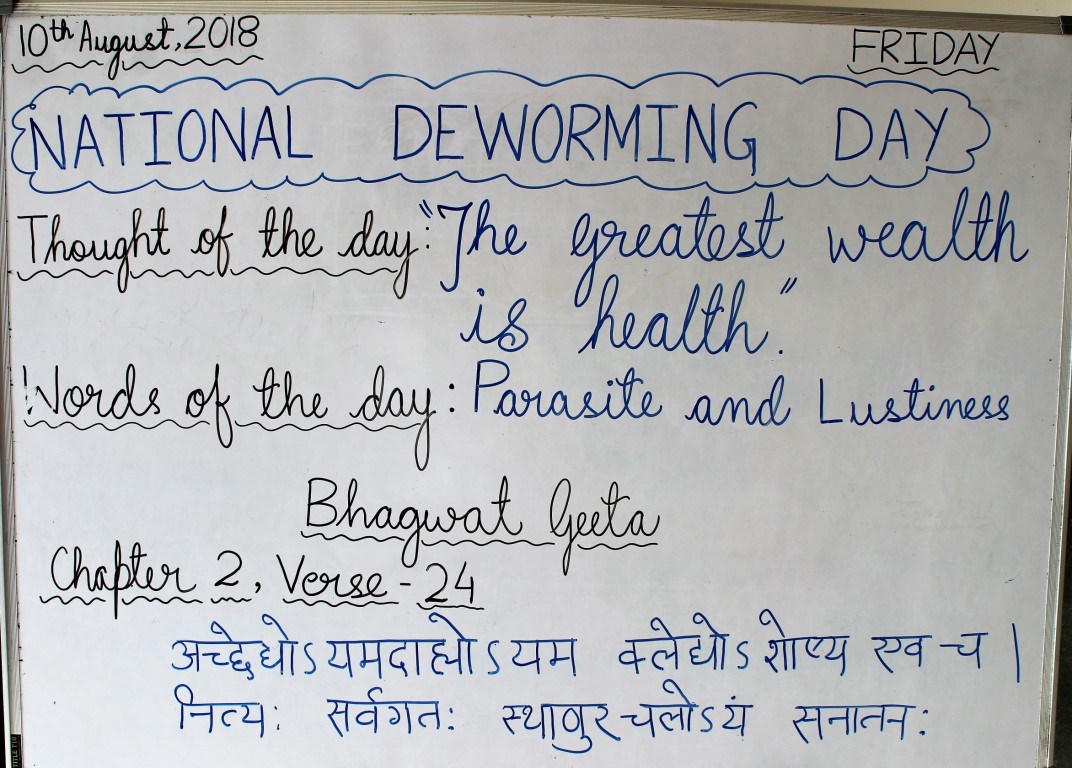 10th August, 2018 FRIDAY
NATIONAL DEWORMING DAY
Thought of the day: "The greatest wealth
is health."
Words of the day: Parasite and Lustiness
Bhagwat Geeta
Chapter 2, Verse - 24
अच्छेद्योऽयमदाह्योऽयम क्लेद्योऽशोष्य एव च |
नित्यः सर्वगतः स्थाणुरचलोऽयं सनातनः